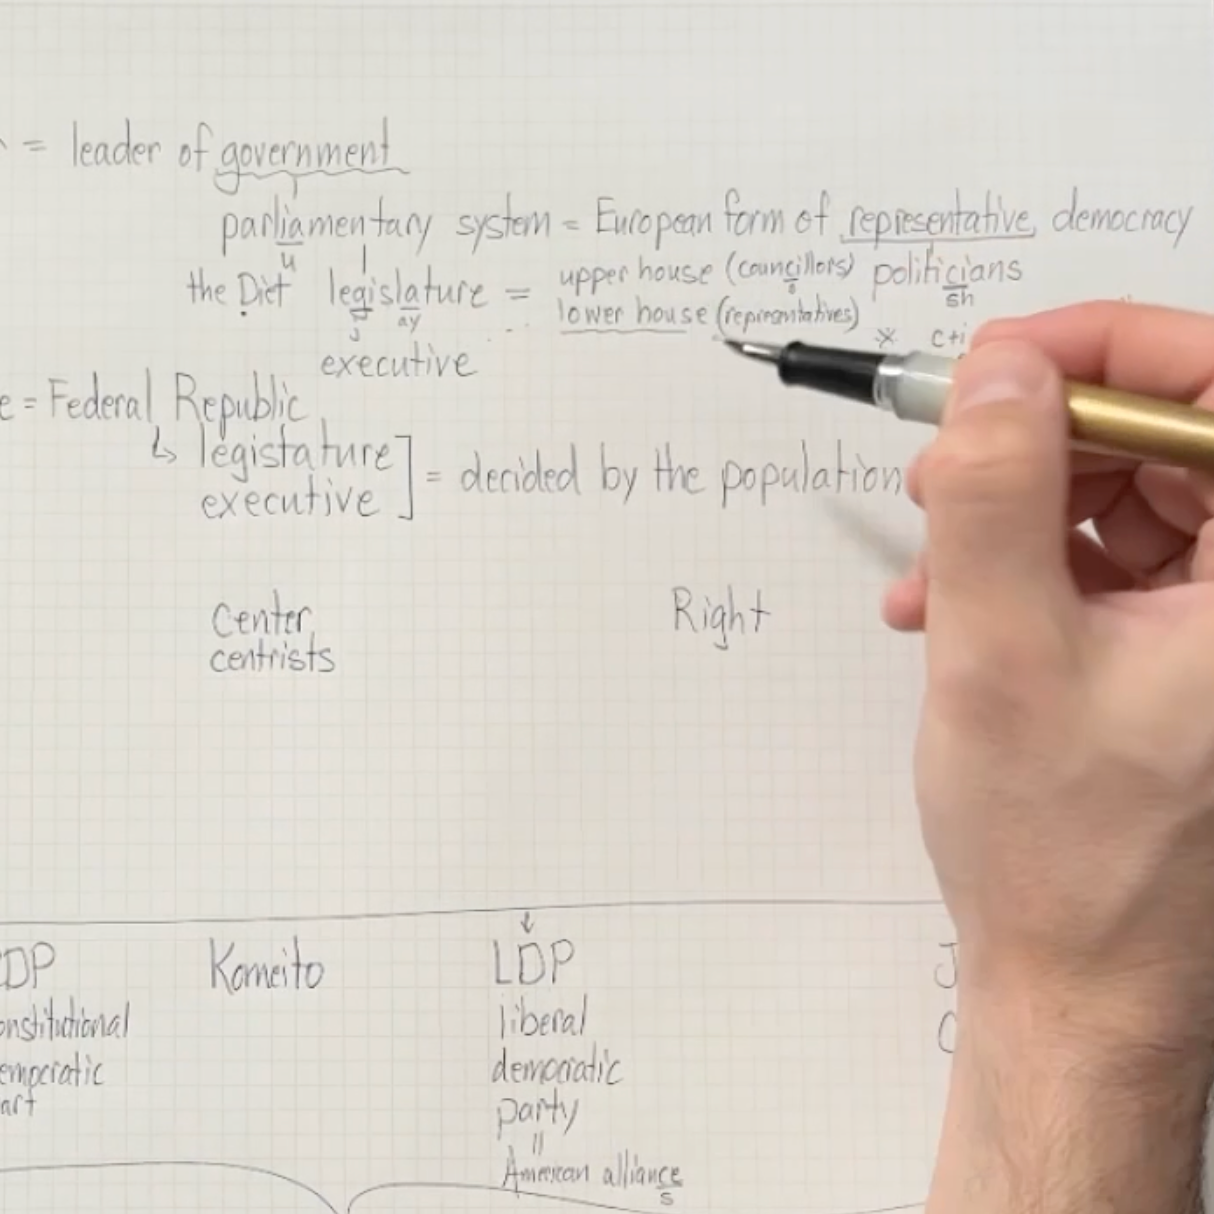 = leader of government
parliamentary system = European form of representative democracy
u
the Diet legislature = upper house (councillors) politicians
s sh
j ay lower house (representatives)
※ c+i
executive
e = Federal Republic
↳ legistature
executive ] = decided by the population
Center Right
centrists
↓
DP Komeito LDP J
onstitutional liberal C
emocratic democratic
art party
=
American alliance
s